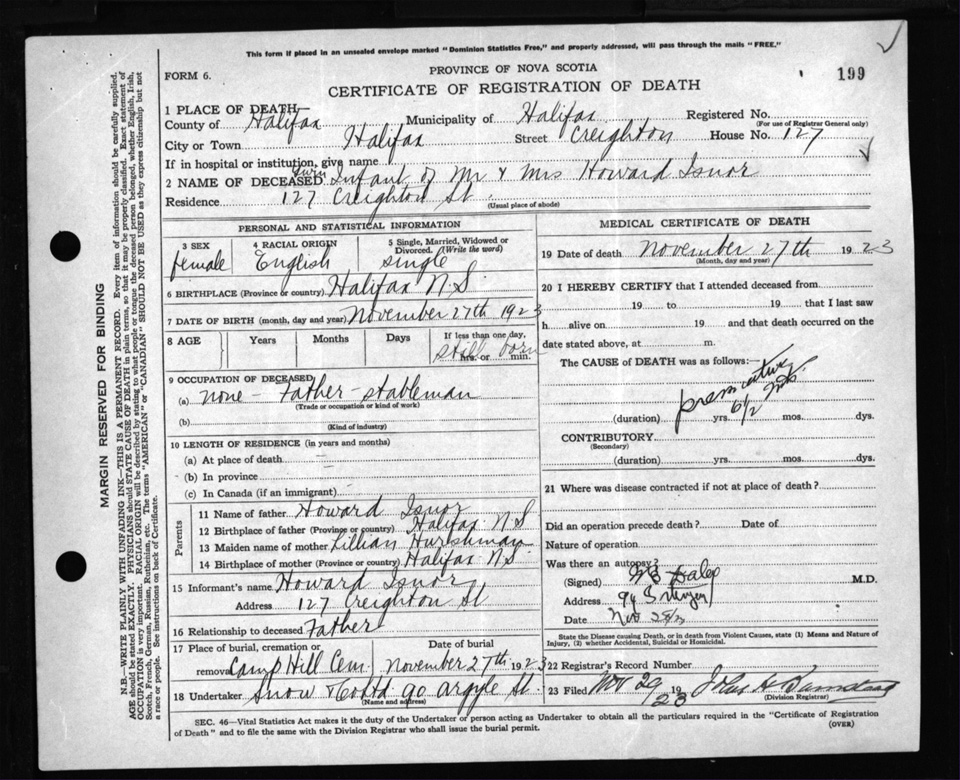 This form if placed in an unsealed envelope marked "Dominion Statistics Free," and properly addressed, will pass through the mails "FREE."
FORM 6.
PROVINCE OF NOVA SCOTIA
199
CERTIFICATE OF REGISTRATION OF DEATH
1 PLACE OF DEATH—
County of Halifax Municipality of Halifax Registered No.
(For use of Registrar General only)
City or Town Halifax Street Creighton House No. 127
If in hospital or institution, give name
2 NAME OF DECEASED Twin Infant of Mr & Mrs Howard Isnor
Residence 127 Creighton St
(Usual place of abode)
PERSONAL AND STATISTICAL INFORMATION
3 SEX female
4 RACIAL ORIGIN English
5 Single, Married, Widowed or Divorced. (Write the word) single
6 BIRTHPLACE (Province or country) Halifax N.S.
7 DATE OF BIRTH (month, day and year) November 27th 1923
8 AGE Years Months Days If less than one day, hrs. or min. still born
9 OCCUPATION OF DECEASED
(a) none - Father - stableman
(Trade or occupation or kind of work)
(b)
(Kind of industry)
10 LENGTH OF RESIDENCE (in years and months)
(a) At place of death
(b) In province
(c) In Canada (if an immigrant)
Parents
11 Name of father Howard Isnor
12 Birthplace of father (Province or country) Halifax N S
13 Maiden name of mother Lillian
14 Birthplace of mother (Province or country) Halifax N.S
15 Informant's name Howard Isnor
Address 127 Creighton St
16 Relationship to deceased Father
17 Place of burial, cremation or removal Camp Hill Cem. Date of burial November 27th 1923
18 Undertaker Snow & Co Ltd 90 Argyle St.
(Name and address)
MEDICAL CERTIFICATE OF DEATH
19 Date of death November 27th 1923
(Month, day and year)
20 I HEREBY CERTIFY that I attended deceased from
19 to 19 that I last saw
h alive on 19 and that death occurred on the
date stated above, at m.
The CAUSE of DEATH was as follows:—
premature
6 1/2 mos.
(duration) yrs. mos. dys.
CONTRIBUTORY
(Secondary)
(duration) yrs. mos. dys.
21 Where was disease contracted if not at place of death?
Did an operation precede death? Date of
Nature of operation
Was there an autopsy?
(Signed) M.D.
Address 94
Date Nov
State the Disease causing Death, or in death from Violent Causes, state (1) Means and Nature of Injury, (2) whether Accidental, Suicidal or Homicidal.
22 Registrar's Record Number
23 Filed Nov 29 1923
(Division Registrar)
SEC. 46—Vital Statistics Act makes it the duty of the Undertaker or person acting as Undertaker to obtain all the particulars required in the "Certificate of Registration
of Death" and to file the same with the Division Registrar who shall issue the burial permit.
(OVER)
MARGIN RESERVED FOR BINDING
N.B.—WRITE PLAINLY WITH UNFADING INK—THIS IS A PERMANENT RECORD. Every item of information should be carefully supplied.
AGE should be stated EXACTLY. PHYSICIANS should STATE CAUSE OF DEATH in plain terms, so that it may be properly classified. Exact statement of
OCCUPATION is very important. RACIAL ORIGIN will be described by stating to what people or tongue the deceased person belonged, whether English, Irish,
Scotch, French, German, Russian, Ruthenian, etc. The terms "AMERICAN" or "CANADIAN" SHOULD NOT BE USED as they express citizenship but not
a race or people. See instructions on back of Certificate.